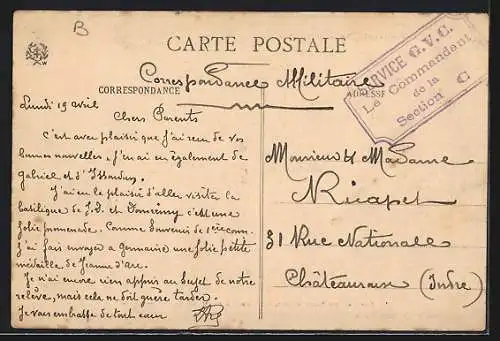 B
CARTE POSTALE
Correspondance Militaire
CORRESPONDANCE
ADRESSE
SERVICE G.V.C.
Le Commandant
de la
Section C
Lundi 19 avril
Chers Parents
C'est avec plaisir que j'ai reçu de vos
bonnes nouvelles, j'en ai eu également de
Gabriel et d'Issoudun.
J'ai eu le plaisir d'aller visiter la
basilique de J.d. et Domrémy c'est une
jolie promenade. Comme Souvenir de 1ère comm.
J'ai fait envoyer à Germaine une jolie petite
médaille de Jeanne d'arc.
Je n'ai encore rien appris au Sujet de notre
relève, mais cela ne doit guère tarder.
Je vous embrasse de tout cœur
Monsieur & Madame
31 Rue Nationale
Châteauroux (Indre)